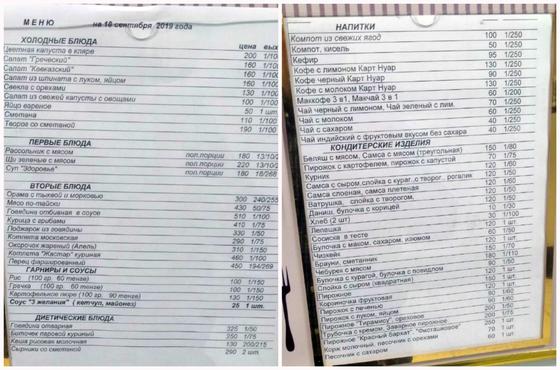 МЕНЮ на 18 сентября 2019 года
ХОЛОДНЫЕ БЛЮДА цена вых
Цветная капуста в кляре 200 1/10
Салат "Греческий" 160 1/10
Салат "Кавказский" 160 1/10
Салат из шпината с луком, яйцом 160 1/100
Свекла с орехами 130 1/100
Салат из свежей капусты с овощами 100 1/100
Яйцо вареное 50 1 шт
Сметана 110 1/100
Творог со сметаной 190 1/100
ПЕРВЫЕ БЛЮДА
Рассольник с мясом пол.порции 180
Щи зеленые с мясом пол.порции 220
Суп "Здоровье" пол.порции 180 18/268
ВТОРЫЕ БЛЮДА
Орама с тыквой и морковью 300 240/255
Мясо по-тайски 430 50/75
Говядина отбивная в соусе 510 1/100
Курица с грибами 410 1/75
Поджарок из говядины 330 1/50
Котлета московская 290 1/75
Окорочок жареный (Апель) 310 1/150
Котлета "Жастар" куриная 460 1/100
Перец фаршированный 450 194/269
ГАРНИРЫ И СОУСЫ
Рис (100 гр. 60 тенге) 100 1/150
Гречка (100 гр. 60 тенге) 100 1/150
Картофельное пюре (100 гр. 90 тенге) 130 1/150
Соус "3 желания" ( кетчуп, майонез) 25 1 шт.
ДИЕТИЧЕСКИЕ БЛЮДА
Говядина отварная 325 1/50
Биточек паровой куриный 250 1/75
Каша рисовая молочная 130 200/215
Сырники со сметаной 290 2 шт.
НАПИТКИ
Компот из свежих ягод 100 1/250
Компот, кисель 50 1/250
Кефир 95 1/250
Кофе с лимоном Карт Нуар 130 1/250
Кофе черный Карт Нуар 90 1/250
Кофе с молоком Карт Нуар 130 1/250
Макхофе 3 в1, Макчай 3 в 1 60 1/200
Чай черный с лимоном, Чай зеленый с лим. 70 1/250
Чай с молоком 50 1/250
Чай с сахаром 40 1/250
Чай индийский с фруктовым вкусом без сахара 40 1/250
КОНДИТЕРСКИЕ ИЗДЕЛИЯ
Беляш с мясом, Самса с мясом (треугольная) 150 1/80
Пирожок с картофелем, пирожок с капустой 70 1/75
Курник
Самса с сыром,слойка с кураг.,с творог., рогалик
Самса слоеная, самса плетеная
Ватрушка, слойка с творогом,
Даниш, булочка с корицей
Хлеб (2 шт)
Лепешка
Сосиска в тесте
Булочка с маком, сахаром, изюмом
Чизкейк
Брауни, сметанник
Чебурек с мясом
Булочка с курагой, булочка с повидлом
Слойка с сыром (квадратная)
Пирожное
Корзиночка фруктовая
Пирожок с печенью
Пирожок с луком, яйцом
Пирожное "Тирамису", ореховое
Трубочка с кремом, Заварное пирожное
Пирожное "Красный бархат",
Корж молочный, песочник с орехами
Песочник с сахаром